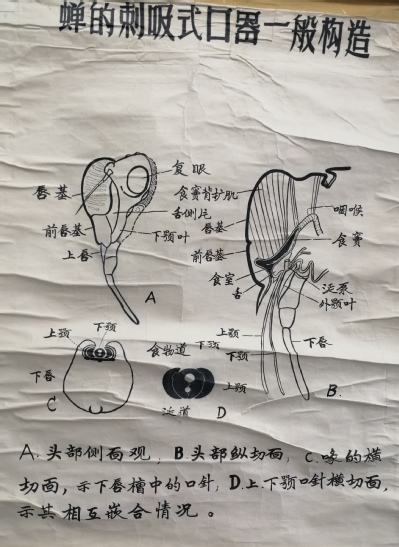 蝉的刺吸式口器一般构造
复眼
唇基
舌侧片
前唇基
下颚叶
上唇
A
食窦背扩肌
唇基
咽喉
前唇基
食窦
食室
舌
涎泵
外颚叶
上颚
下颚
下颚
下唇
B.
上颚
下颚
下唇
C
食物道
上颚
涎道
D
A.头部侧面观,B.头部纵切面,C.喙的横
切面,示下唇槽中的口针,D.上.下颚口针横切面,
示其相互嵌合情况。